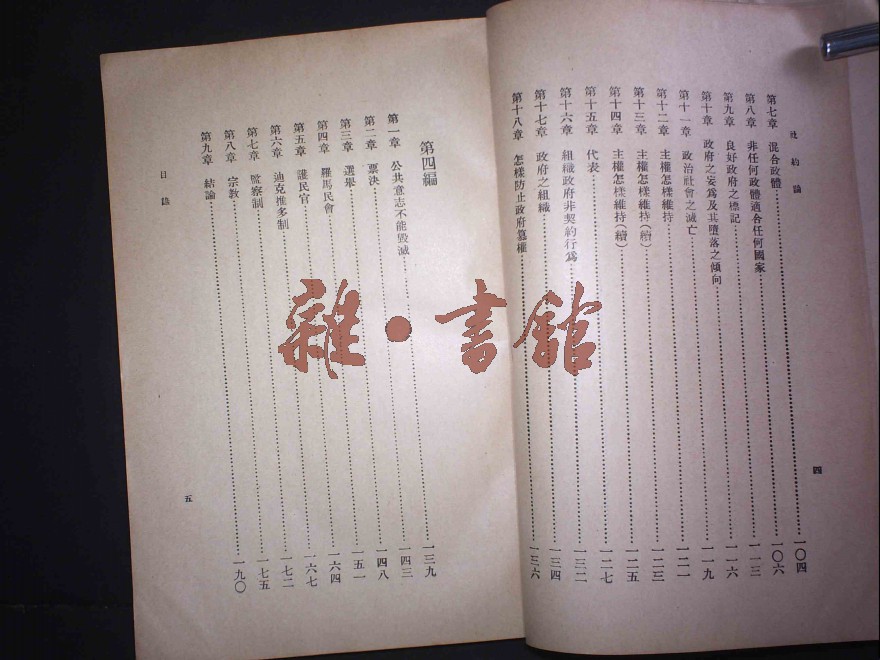 社約論
第七章 混合政體 一〇四
第八章 非任何政體適合任何國家 一〇六
第九章 良好政府之標記 一一三
第十章 政府之妄為及其墮落之傾向 一一六
第十一章 政治社會之滅亡 一一九
第十二章 主權怎樣維持 一二一
第十三章 主權怎樣維持(續) 一二三
第十四章 主權怎樣維持(續) 一二五
第十五章 代表 一二七
第十六章 組織政府非契約行為 一三二
第十七章 政府之組織 一三四
第十八章 怎樣防止政府篡權 一三六
四
第四編
第一章 公共意志不能毀滅 一三九
第二章 票決 一四三
第三章 選舉 一四八
第四章 羅馬民會 一五一
第五章 護民官 一六四
第六章 迪克推多制 一六七
第七章 監察制 一七二
第八章 宗教 一七五
第九章 結論 一九〇
目錄
五
雜·書館